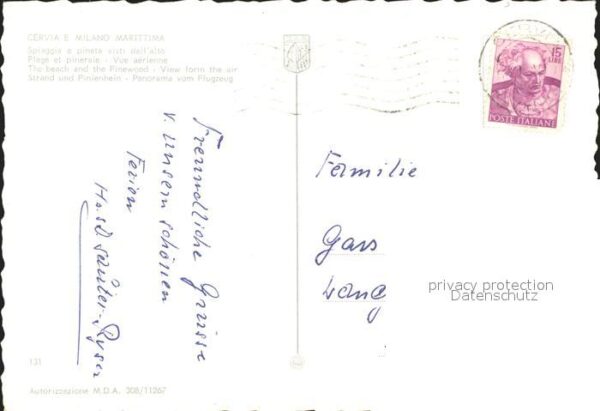 CERVIA E MILANO MARITTIMA
Spiaggia e pineta visti dall'alto
Plage et pineraie - Vue aérienne
The beach and the Pinewood - View form the air
Strand und Pinienhein - Panorama vom Flugzeug
15
LIRE
POSTE ITALIANE
Freundliche Grüsse
v. unsern schönen
Ferien
H. u. D. Sauter-Ryser
Familie
Gars
Wang
privacy protection
Datenschutz
131
Autorizzazione M.D.A. 308/11267